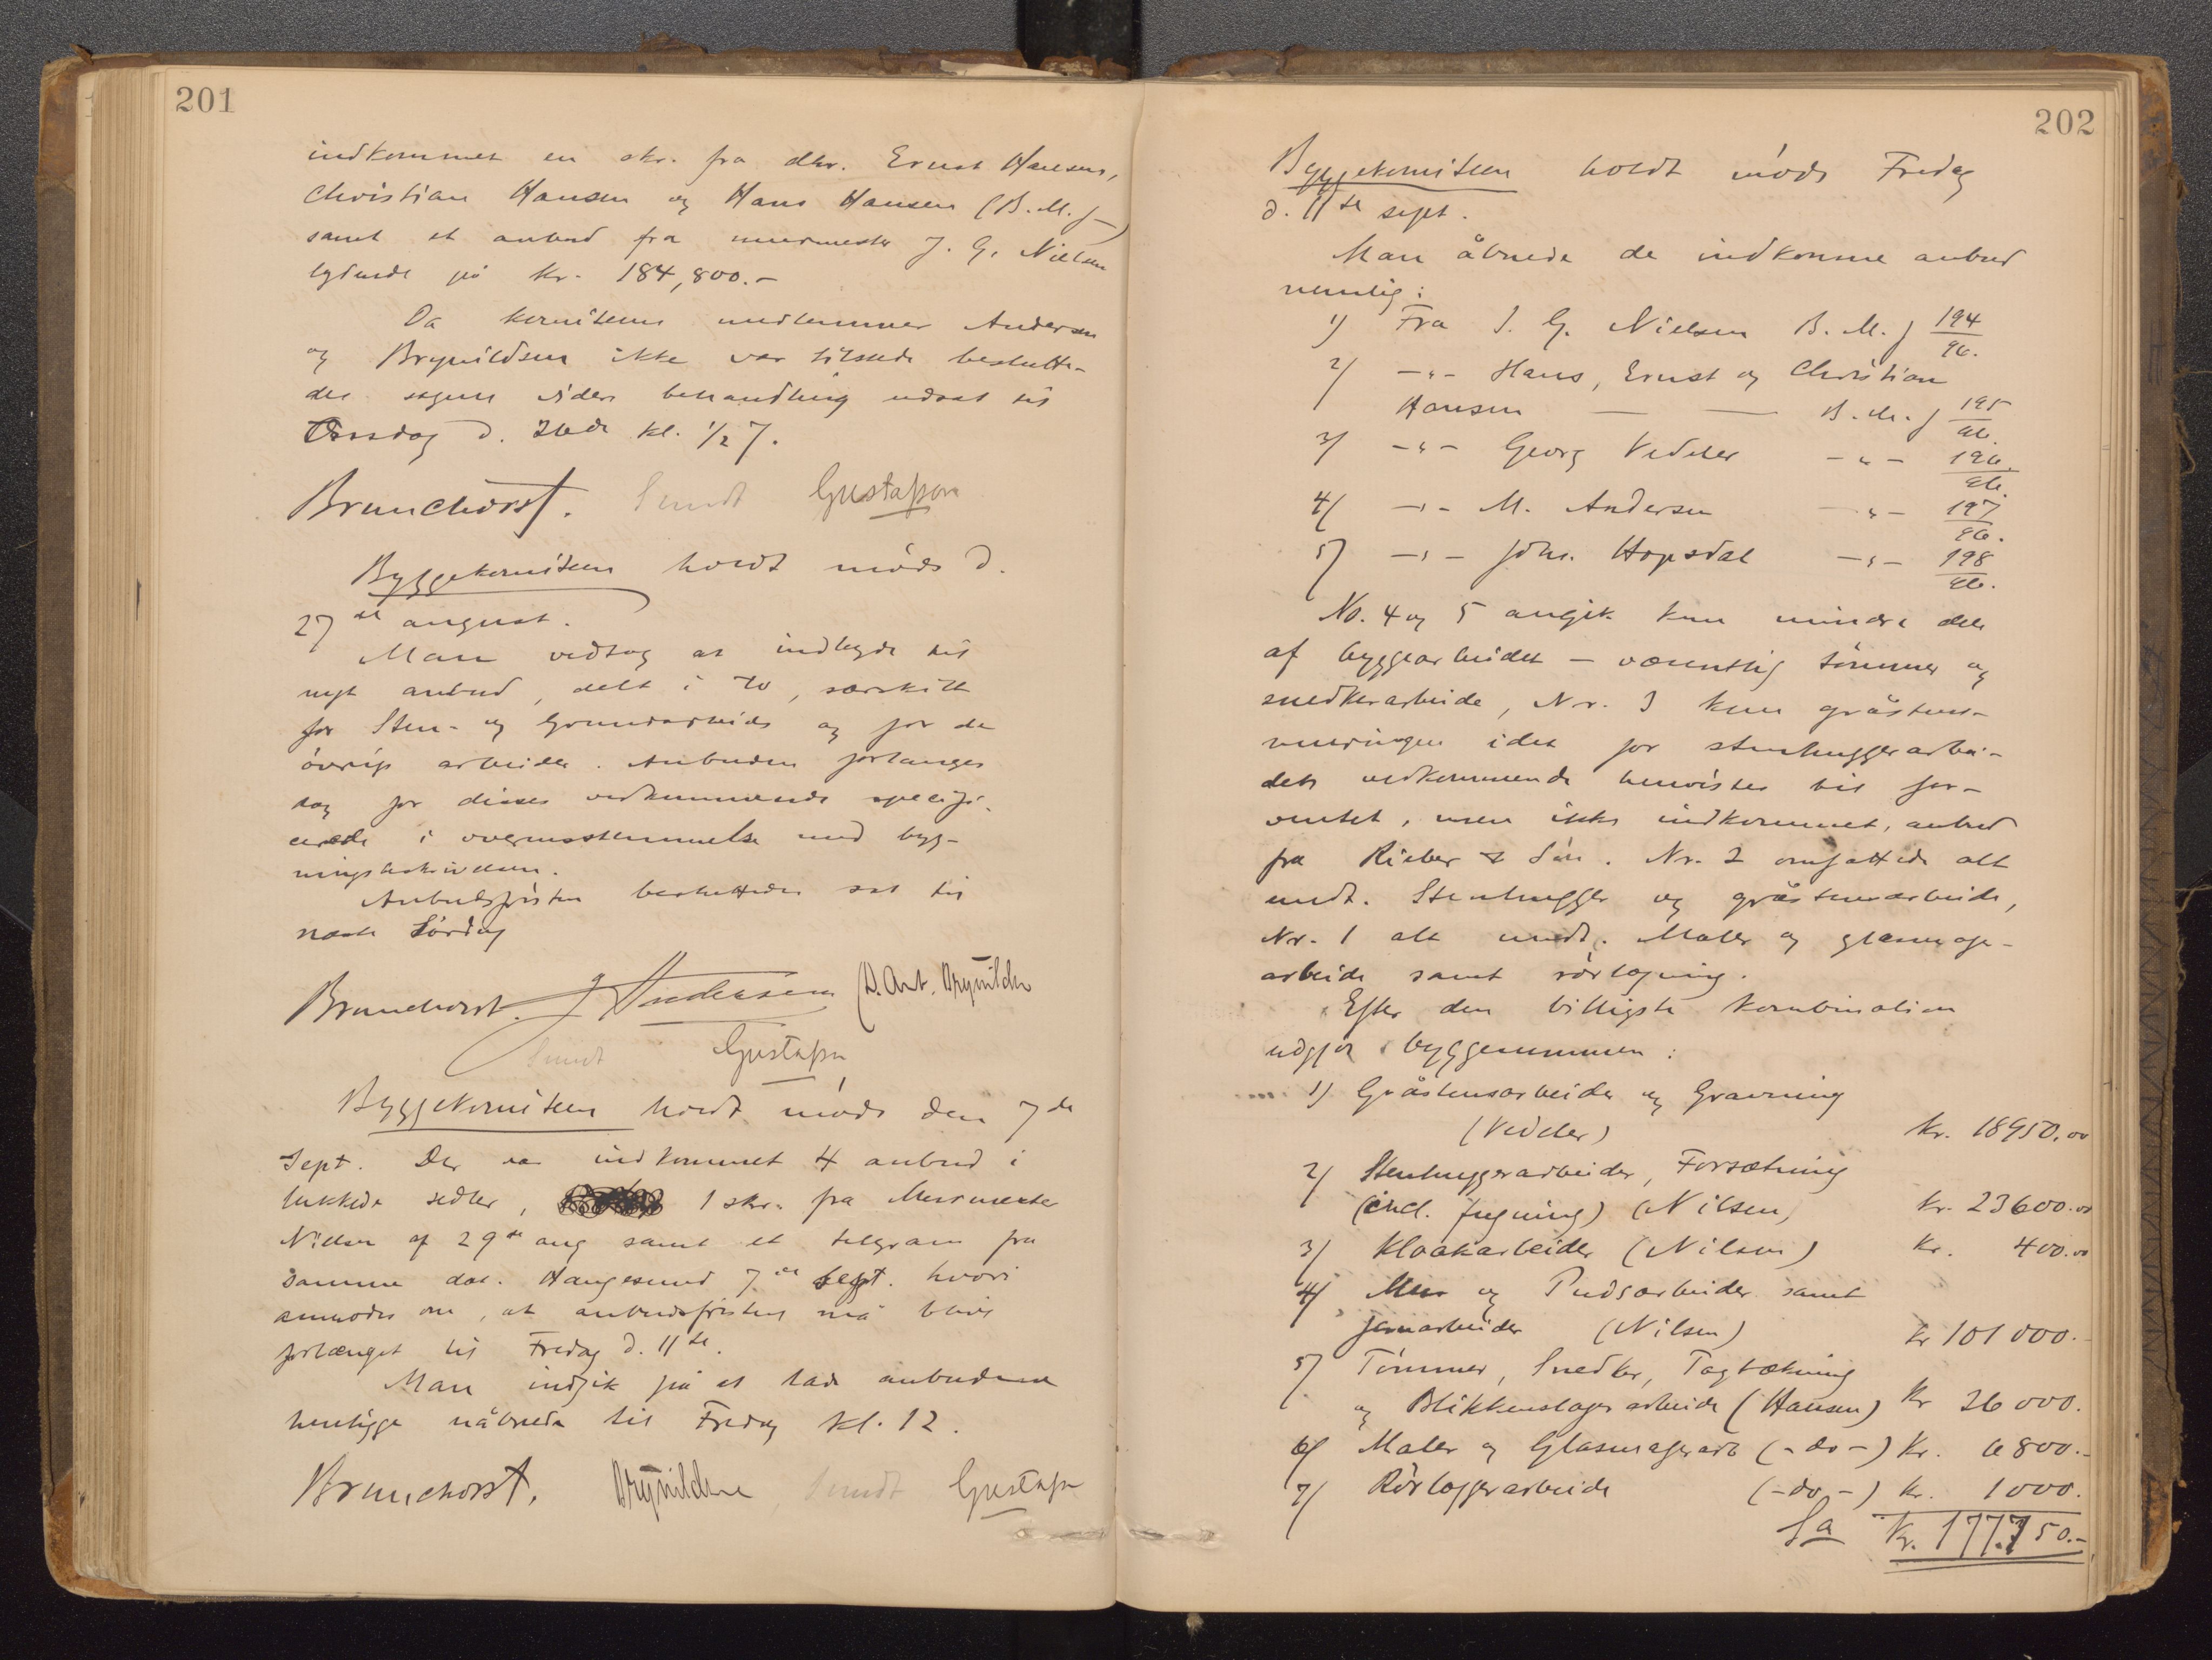 201
indkommet en skr. fra dhr. Ernst Hansen,
Christian Hansen og Hans Hansen (B. M. J –)
samt et anbud fra murmester J. G. Nielsen
lydende på kr. 184,800.–
Da komiteens medlemmer Andersen
og Brynildsen ikke var tilstede beslutte-
des sagens videre behandling udsat til
Onsdag d. 26de kl. 1/2 7.
Brunchorst. Sundt Gustafson
Byggekomiteen holdt möde d.
27de august.
Man vedtog at indbyde til
nyt anbud, delt i to, særskilt
for Sten- og Grundarbeide og for de
övrige arbeider. Anbuden forlanges
dog for disses vedkommende specifi-
cerede i overensstemmelse med byg-
ningsbeskrivelsen.
Anbudsfristen besluttedes sat til
næste Lördag
Brunchorst. J Andersen D. Ant. Brynildsen
Sundt Gustafson
Byggekomiteen holdt möde den 7de
Sept. Der var indkommet 4 anbud i
lukkede sedler, 1 skr. fra Murmester
Nielsen af 29de aug samt et telegram fra
samme dat. Haugesund 7de sept. hvori
anmodes om, at anbudsfristen må blive
forlænget til Fredag d. 11te.
Man indgik på at lade anbudene
henligge uåbnede til Fredag kl. 12.
Brunchorst. Brynildsen, Sundt Gustafson
202
Byggekomiteen holdt möde Fredag
d. 11te sept.
Man åbnede de indkomne anbud
nemlig:
1) Fra J. G. Nielsen B. M. J 194/96.
2) –"– Hans, Ernst og Christian
Hansen — — B. M. J 195/96.
3) –"– Georg Vedeler –"– 196/96.
4) –"– M. Andersen –"– 197/96.
5) –"– Johs. Hopsdal –"– 198/96.
No. 4 og 5 angik kun mindre dele
af byggearbeidet – væsentlig tömmer og
snedkerarbeide, Nr. 3 kun gråstens-
muringen idet for stenhuggerarbei-
dets vedkommende henvistes til for-
ventet, men ikke indkommet, anbud
fra Rieber & Sön. Nr. 2 omfattede alt
undt. Stenhugger og gråstensarbeide,
Nr. 1 alt undt. Maler og glasmager-
arbeide samt rörlægning.
Efter den billigste kombination
udgjör byggesummen:
1) Gråstensarbeider og Gravning
(Vedeler) kr. 18950.00
2) Stenhuggerarbeider, Forsætning
(incl. fugning) (Nilsen) kr. 23600.00
3) Kloakarbeider (Nilsen) kr. 400.00
4) Mur og Pudsarbeider samt
jernarbeider (Nilsen) kr 101000.–
5) Tömmer, Snedker, Tagtækning
og Blikkenslagerarbeide (Hansen) kr 26000.
6) Maler og Glasmagerarb (– do –) kr. 6800.–
7) Rörlæggerarbeide (– do –) kr. 1000.
Sa kr. 177.750.–